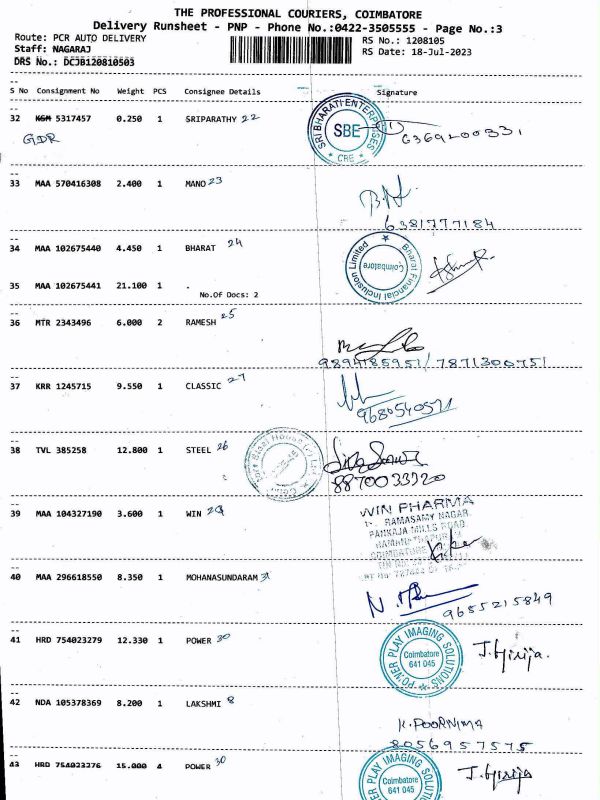 THE PROFESSIONAL COURIERS, COIMBATORE
Delivery Runsheet - PNP - Phone No.:0422-3505555 - Page No.:3
Route: PCR AUTO DELIVERY
RS No.: 1208105
Staff: NAGARAJ
RS Date: 18-Jul-2023
DRS No.: DCJB120810503
S No Consignment No Weight PCS Consignee Details Signature
32 KGM 5317457 0.250 1 SRIPARATHY 22
GDR
SRI BHARATI ENTERPRISES SBE CBE
6369200331
33 MAA 570416308 2.400 1 MANO 23
6381777184
34 MAA 102675440 4.450 1 BHARAT 24
Bharat Financial Inclusion Limited Coimbatore
35 MAA 102675441 21.100 1 .
No.Of Docs: 2
36 MTR 2343496 6.000 2 RAMESH 25
9894185951/7871300751
37 KRR 1245715 9.550 1 CLASSIC 27
9680540571
38 TVL 385258 12.800 1 STEEL 26
8870033320
39 MAA 104327190 3.600 1 WIN 29
WIN PHARMA
RAMASAMY NAGAR
PANKAJA MILLS ROAD
COIMBATORE
40 MAA 296618550 8.350 1 MOHANASUNDARAM 31
9655215849
41 HRD 754023279 12.330 1 POWER 30
POWER PLAY IMAGING SOLUTIONS Coimbatore 641 045
J. Girija.
42 NDA 105378369 8.200 1 LAKSHMI 8
K. POORNIMA
8056957575
43 HRD 754023276 15.000 4 POWER 30
POWER PLAY IMAGING SOLUTIONS Coimbatore 641 045
J. Girija